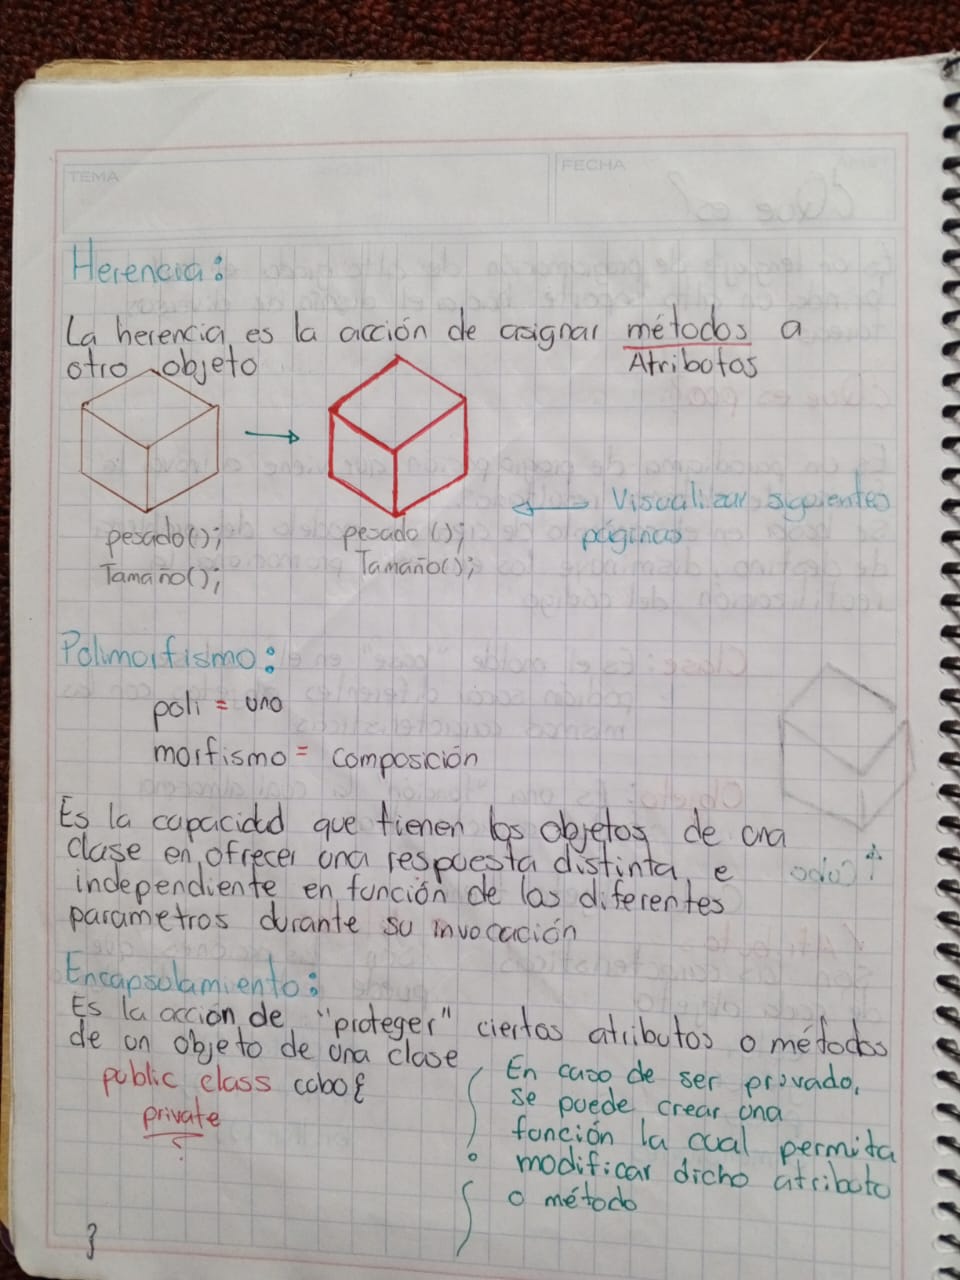 TEMA
FECHA
Herencia:
La herencia es la acción de asignar métodos a
otro objeto Atributos
pesado();
Tamaño();
pesado ();
Tamaño();
Visualizar siguientes
páginas
Polimorfismo:
poli = uno
morfismo = composición
Es la capacidad que tienen los objetos de una
clase en ofrecer una respuesta distinta e
independiente en función de los diferentes
parametros durante su invocación
Encapsulamiento:
Es la acción de "proteger" ciertos atributos o métodos
de un objeto de una clase
public class cubo{
private
}
En caso de ser provado,
se puede crear una
función la cual permita
modificar dicho atributo
o método